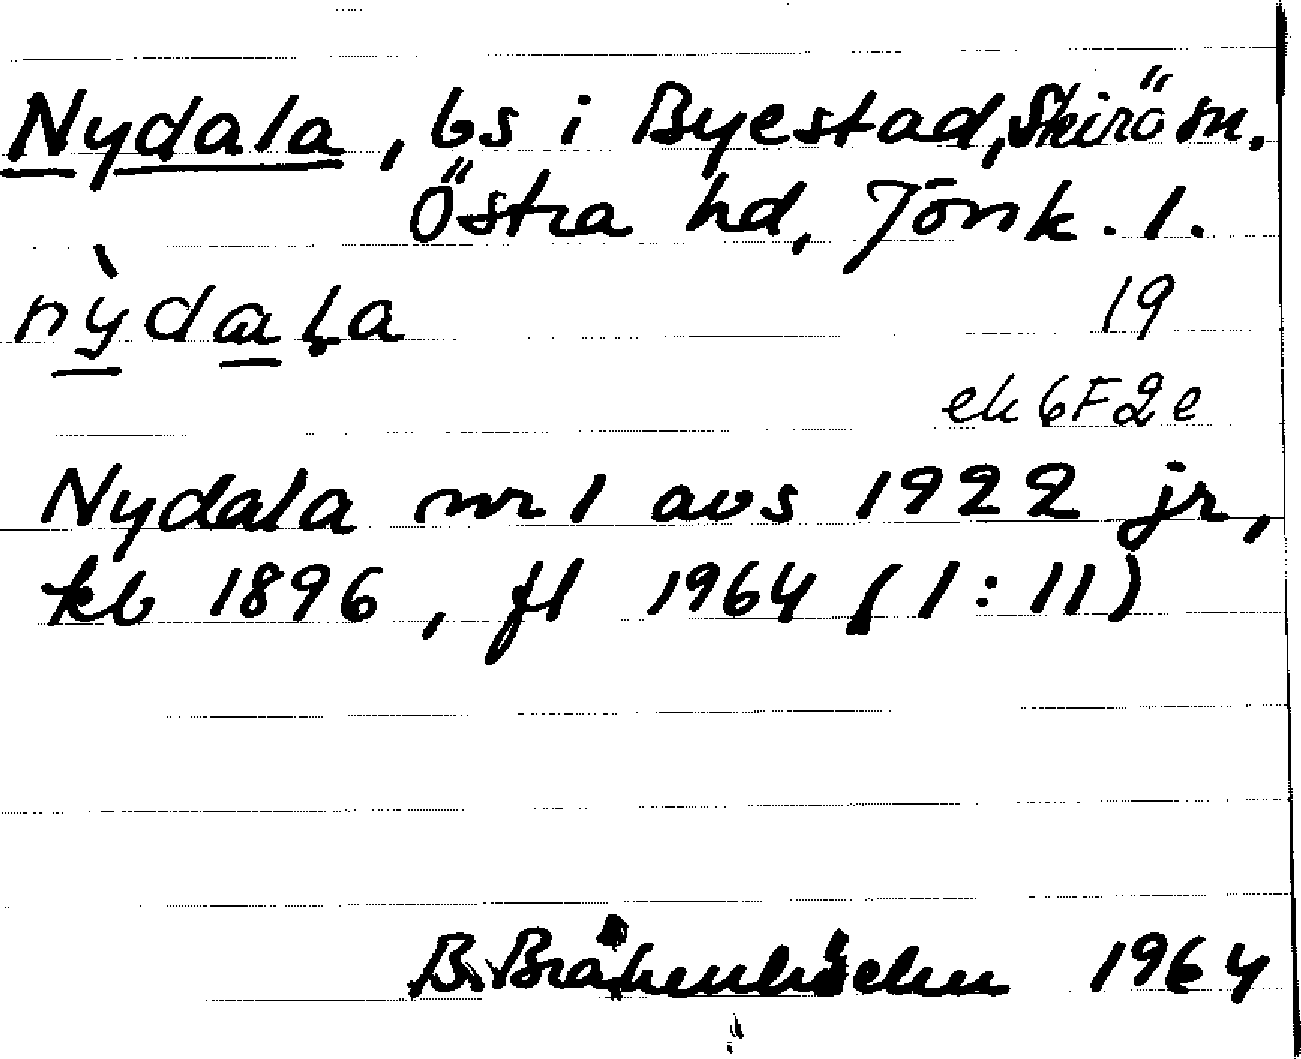 Nydala, bs i Byestad, Skirö sn.
Östra hd, Jönk. l.
nỳdaḷa
19
ek 6F2e
Nydala nr 1 avs 1922 jr,
kb 1896, fl 1964 (1:11)
B. 1964